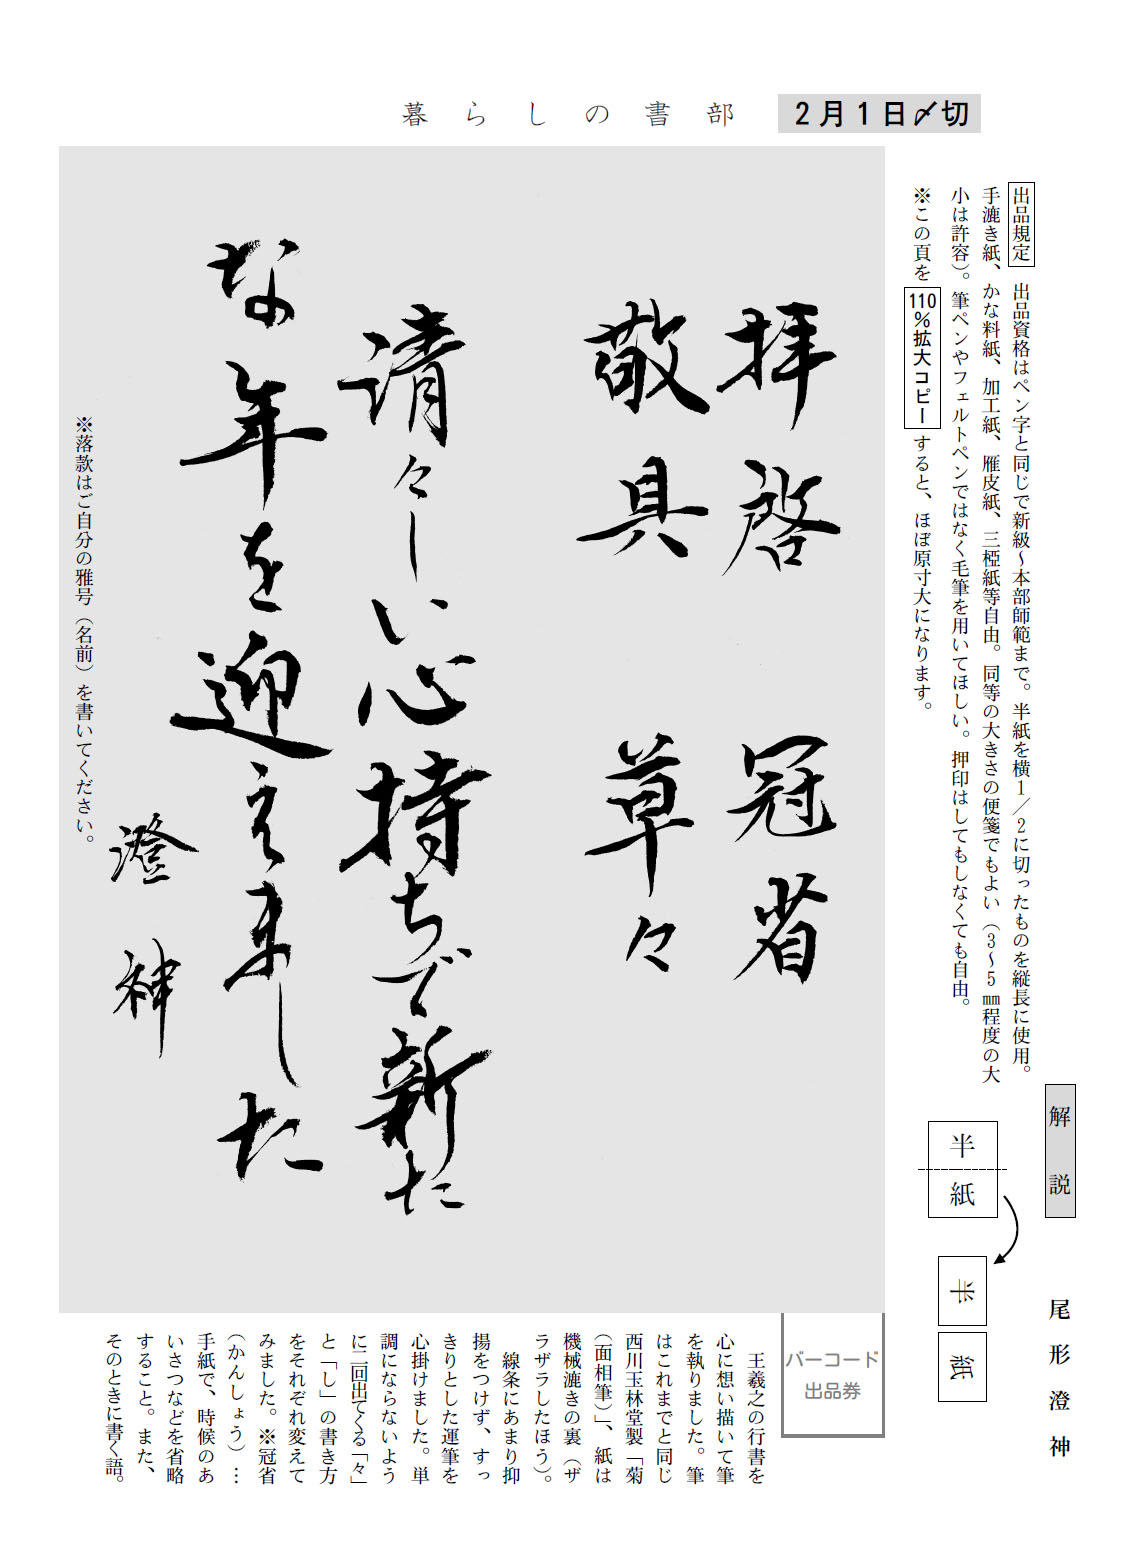 暮らしの書部
2月1日〆切
出品規定 出品資格はペン字と同じで新級～本部師範まで。半紙を横1／2に切ったものを縦長に使用。
手漉き紙、かな料紙、加工紙、雁皮紙、三椏紙等自由。同等の大きさの便箋でもよい（3～5㎜程度の大
小は許容）。筆ペンやフェルトペンではなく毛筆を用いてほしい。押印はしてもしなくても自由。
※この頁を110％拡大コピーすると、ほぼ原寸大になります。
拝啓 冠省
敬具 草々
清々しい心持ちで新た
な年を迎えました
澄神
※落款はご自分の雅号（名前）を書いてください。
解説
尾形澄神
半紙
半
紙
バーコード
出品券
王羲之の行書を
心に想い描いて筆
を執りました。筆
はこれまでと同じ
西川玉林堂製「菊
（面相筆）」、紙は
機械漉きの裏（ザ
ラザラしたほう）。
線条にあまり抑
揚をつけず、すっ
きりとした運筆を
心掛けました。単
調にならないよう
に二回出てくる「々」
と「し」の書き方
をそれぞれ変えて
みました。※冠省
（かんしょう）…
手紙で、時候のあ
いさつなどを省略
すること。また、
そのときに書く語。